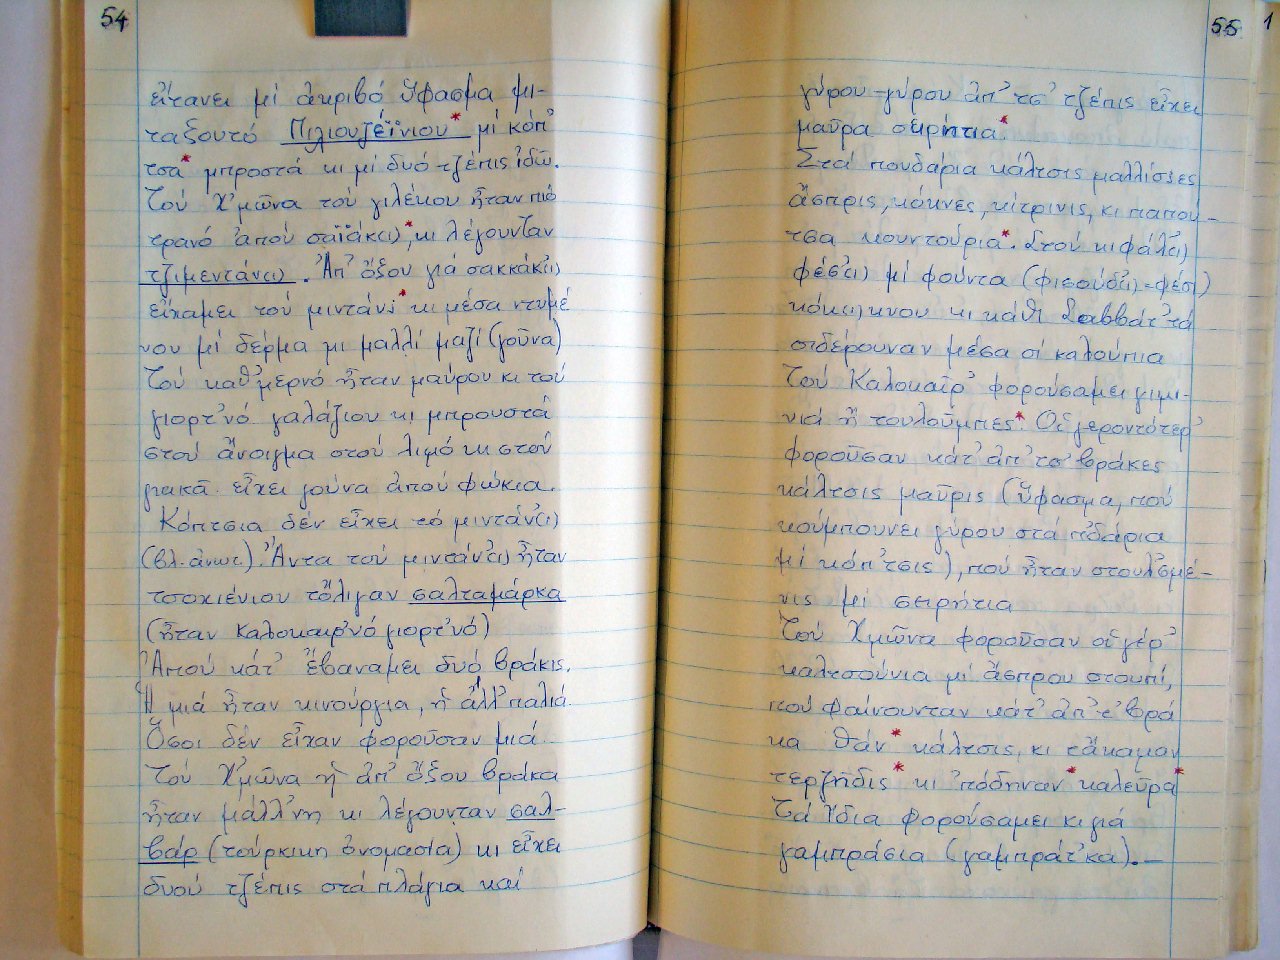 54
εἴτανει μί ἀκριβό ὕφασμα μι-
ταξουτό Πιλιουζέϊνιου* μί κόπ'
τσα* μπροστά κι μί δυό τζέπις ἰδῶ.
Τού Χ'μῶνα τού γιλέκου ἦταν πιό
τρανό ἀπού σαϊάκ(ι),* κι λέγουνταν
τζιμεντάν(ι). Ἀπ' ὄξου γιά σακκάκ(ι)
εἴχαμει τού μιντάν* κι μέσα ντυμέ
νου μί δέρμα μι μαλλί μαζί (γοῦνα)
Τού καθ'μερνό ἦταν μαύρου κι τού
γιορτ'νό γαλάζιου κι μπρουστά
στού ἄνοιγμα στού λιμό κι στού
γιακᾶ εἶχει γούνα ἀπού φώκια.
Κόπτσια δέν εἶχει τό μιντάν(ι)
(βλ. ἀνωτ.). Ἄντα τού μιντάν(ι) ἦταν
τσοχιένιου τὄλιγαν σαλταμάρκα
(ἦταν καλοκαιρ'νό γιορτ'νό)
Ἀπού κάτ' ἔβαναμει δυό βράκις.
Ἡ μιά ἦταν κινούργια, ἡ ἄλλ' παλιά
Ὅσοι δέν εἶχαν φοροῦσαν μιά
Τού Χ'μῶνα ἡ ἀπ' ὄξου βράκα
ἦταν μάλλ'νη κι λέγουνταν σαλ-
βάρ (τούρκικη ὀνομασία) κι εἶχει
δυού τζέπις στά πλάγια καί
55
1
γύρου-γύρου ἀπ' τσ' τζέπις εἶχει
μαῦρα σιρήτια*
Στά πουδάρια κάλτσις μαλλίσιες
ἄσπρις, κόκ'νες, κίτρινις, κι παπού-
τσα κουντούρια*. Στού κιφάλ(ι)
φέσ(ι) μί φούντα (φισούδ(ι)=φέσι)
κόκ(ι)κνου κι κάθι Σαββάτ' τά
σιδέρουναν μέσα σί καλούπια
Τού Καλοκαῖρ' φορούσαμει γιμι-
νιά ἤ τουλοῦμπες* Οἱ γεροντότερ'
φοροῦσαν κάτ' ἀπ' τσ' βράκες
κάλτσις μαῦρις (ὕφασμα, πού
κούμπουνει γύρου στά π'δάρια
μί κόπ'τσις), πού ἦταν στουλ'σμέ-
νις μί σειρήτια
Τού Χ'μῶνα φοροῦσαν οἱ γέρ'
καλτσούνια μί ἄσπρου στουπί,
πού φαίνουνταν κάτ' ἀπ' τ' βρά
κα θάν* κάλτσις, κι τἄκαμαν
τερζῆδις* κι 'πόδηναν* καλεῦρα*
Τά ἴδια φορούσαμει κι γιά
γαμπράσια (γαμπράτ'κα).—